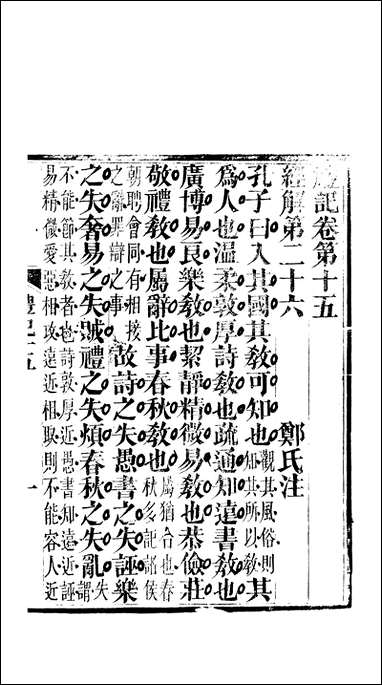 禮記卷第十五
經解第二十六 鄭氏注
孔子曰入其國其敎可知也觀其風俗則知其所以敎其
爲人也溫柔敦厚詩敎也疏通知遠書敎也
廣博易良樂敎也絜靜精微易敎也恭儉莊
敬禮敎也屬辭比事春秋敎也屬猶合也春秋多記諸侯
朝聘會同有相接之辭罪辯之事故詩之失愚書之失誣樂
之失奢易之失賊禮之失煩春秋之失亂失謂
不能節其敎者也詩敦厚近愚書知遠近誣
易精微愛惡相攻遠近相取則不能容人近
禮記十五 一